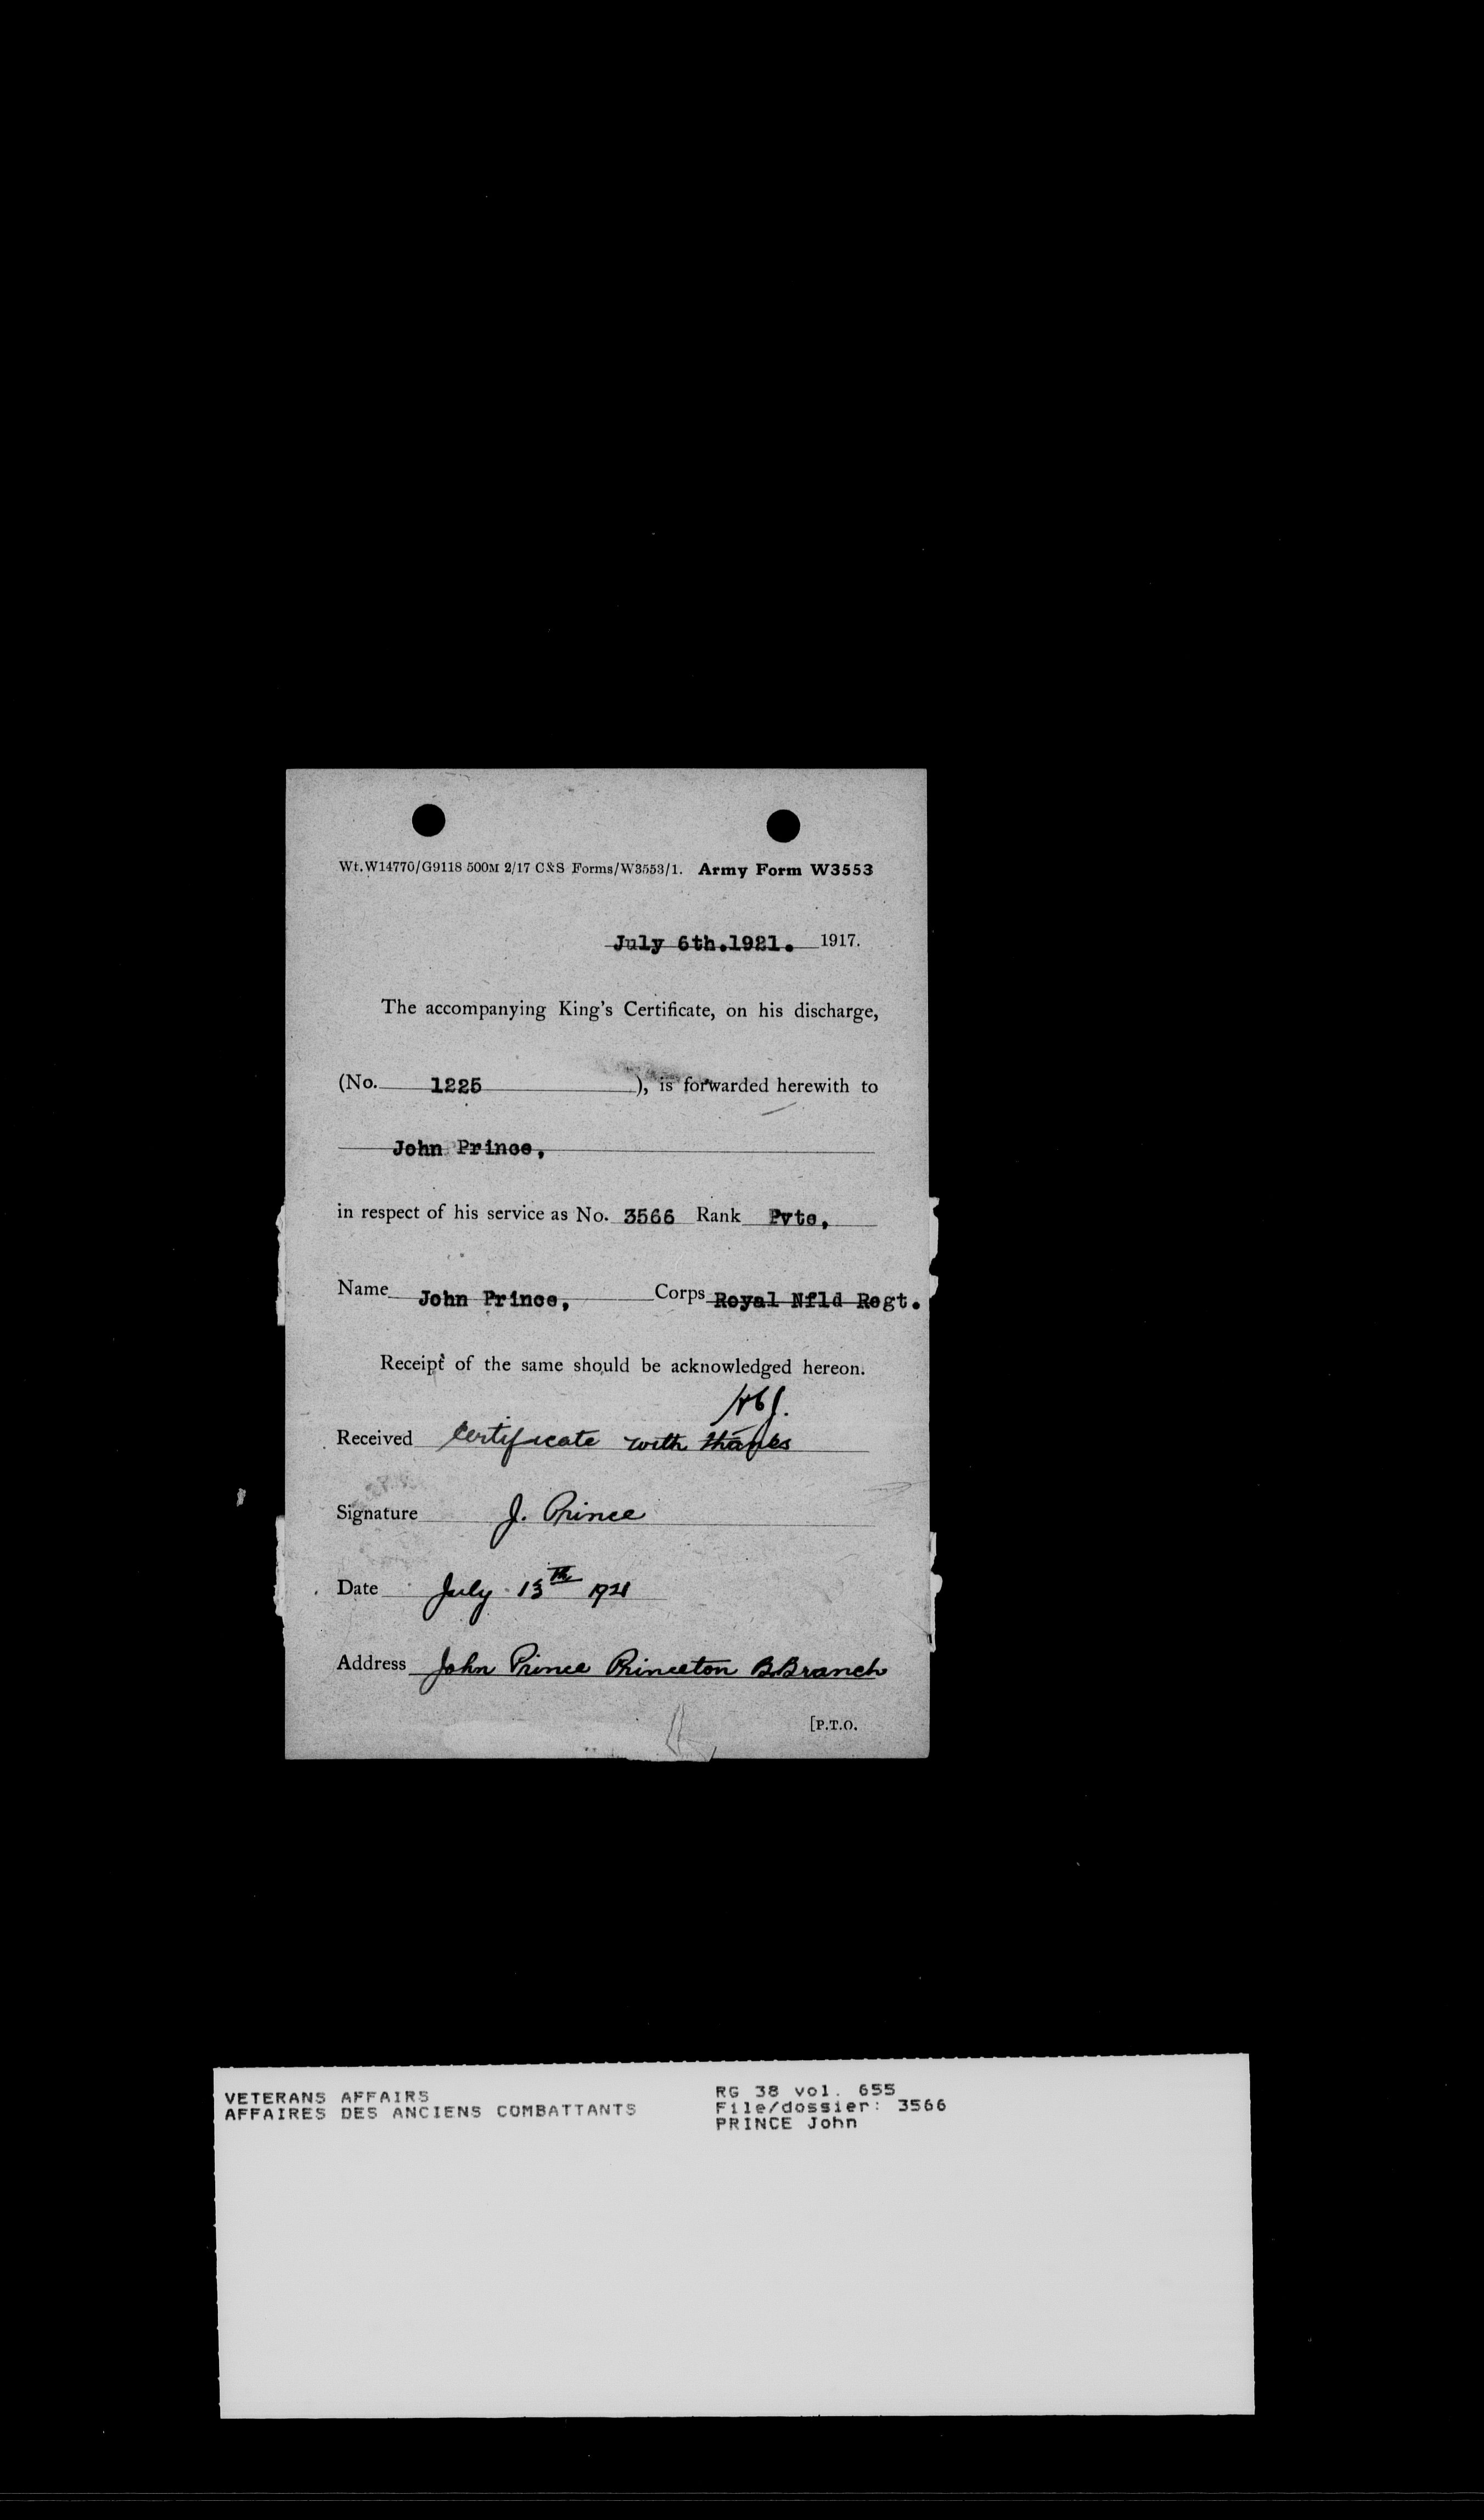 Wt.W14770/G9118 500M 2/17 C&S Forms/W3553/1. Army Form W3553
July 6th.1921. 1917.
The accompanying King's Certificate, on his discharge,
(No. 1225 ), is forwarded herewith to
John Prince,
in respect of his service as No. 3566 Rank Pvte,
Name John Prince, Corps Royal Nfld Regt.
Receipt of the same should be acknowledged hereon.
Received Certificate with thanks
Signature J. Prince
Date July 13th 1921
Address John Prince Princeton B.Branch
[P.T.O.
VETERANS AFFAIRS
AFFAIRES DES ANCIENS COMBATTANTS
RG 38 vol. 655
File/dossier: 3566
PRINCE John